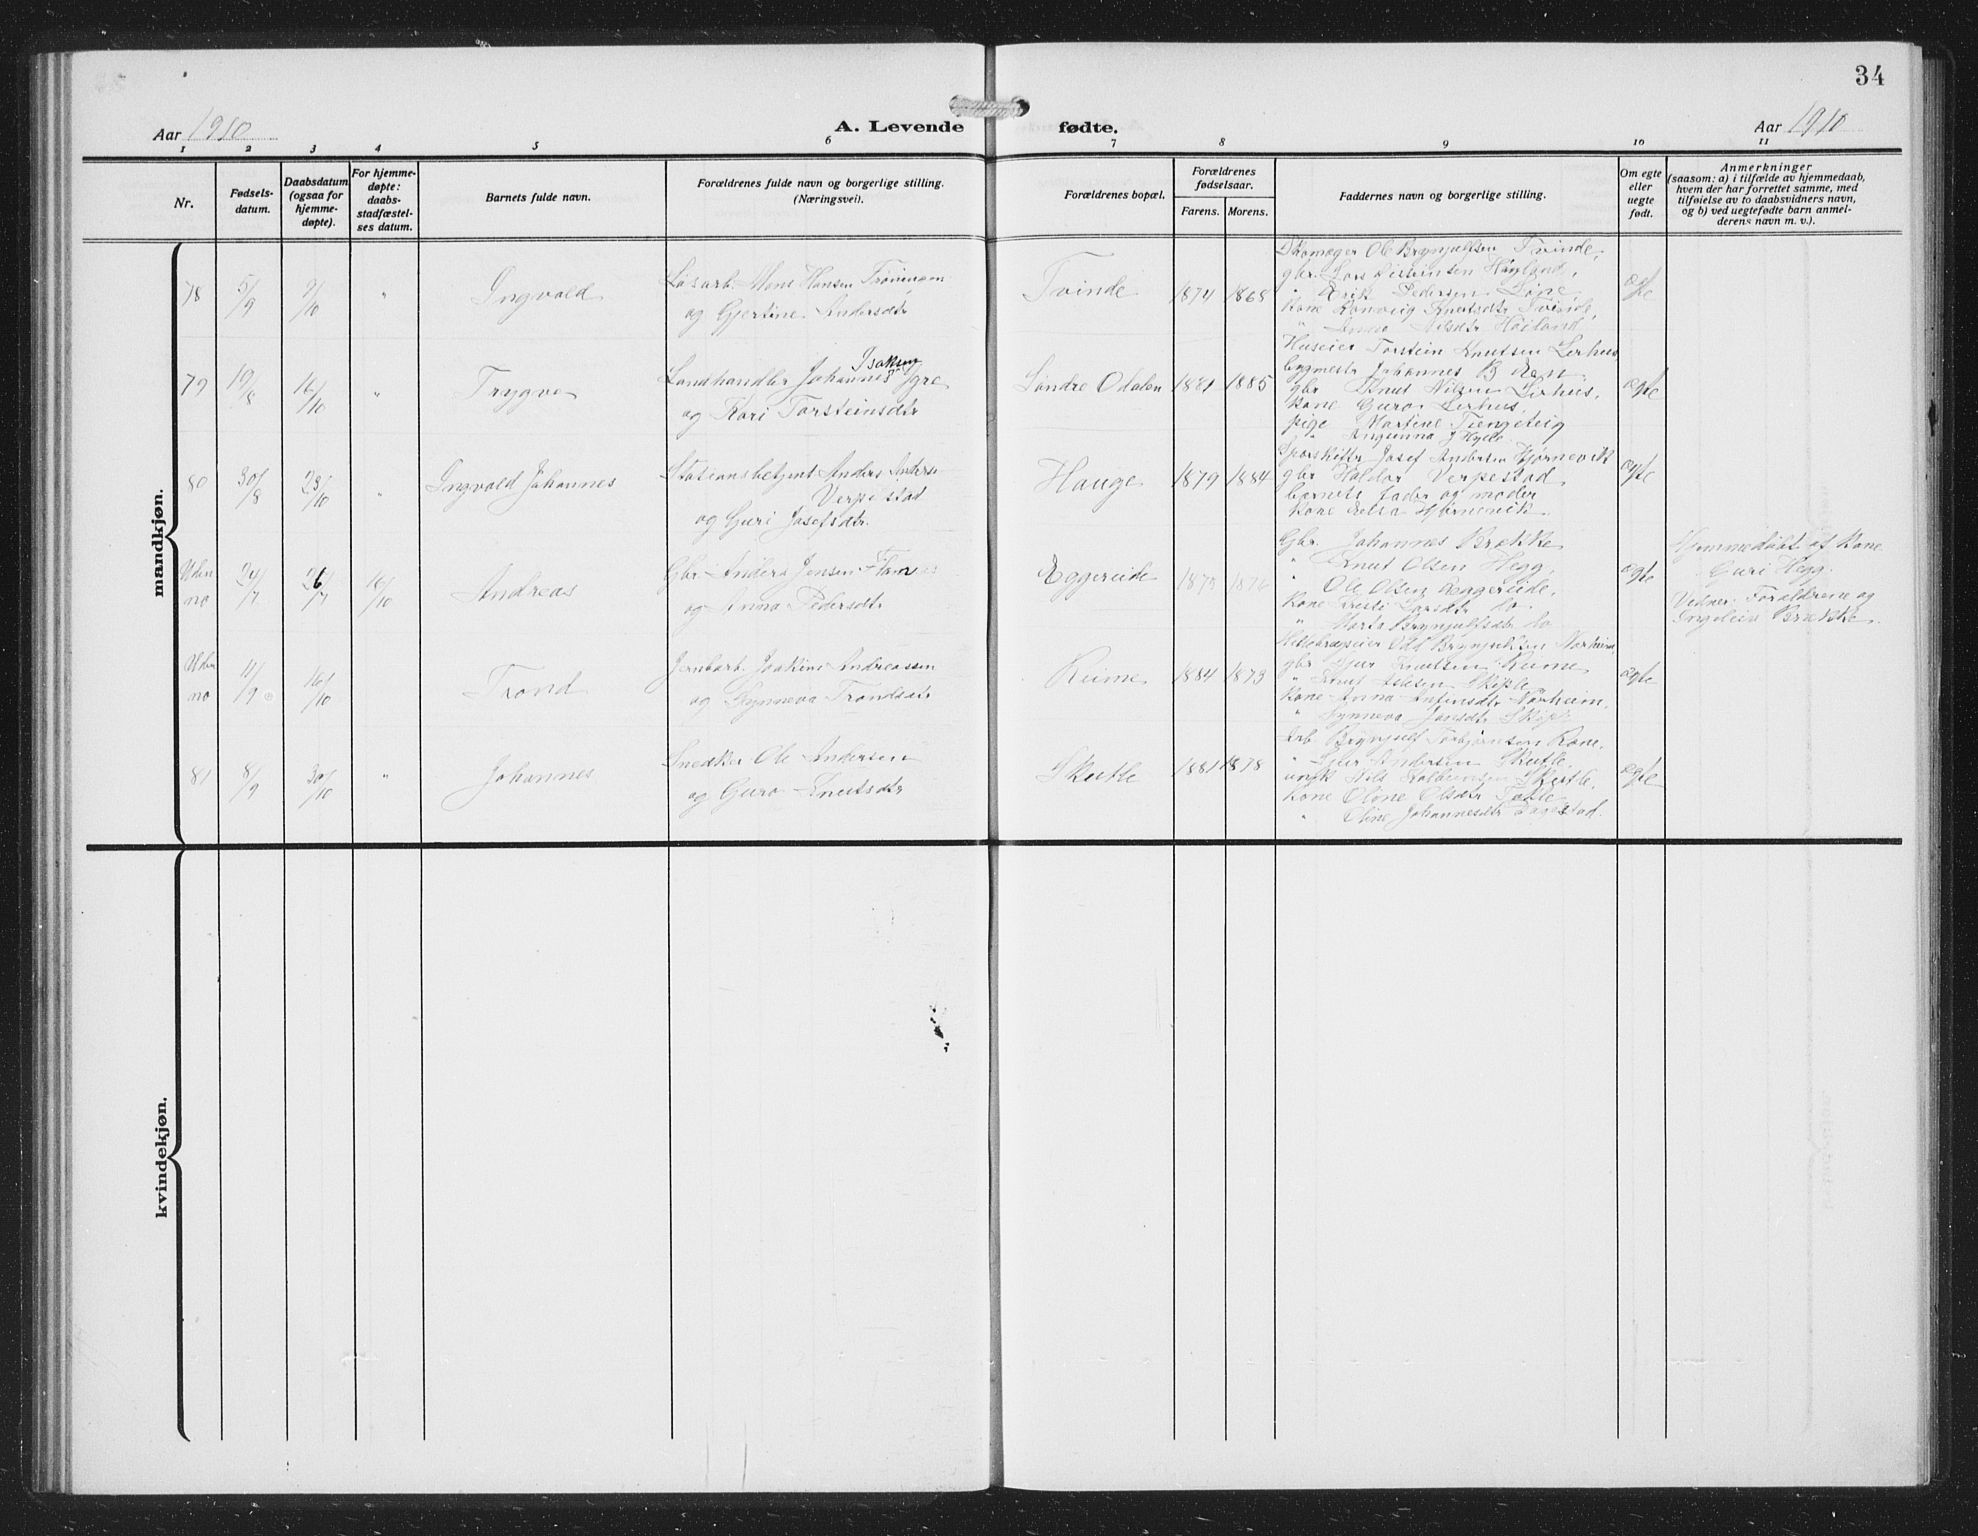 34
Aar 1910
A. Levende fødte.
Aar 1910
1 2 3 4 5 6 7 8 9 10 11
Nr.
Fødsels-
datum.
Daabsdatum
(ogsaa for
hjemme-
døpte).
For hjemme-
døpte:
daabs-
stadfæstel-
ses datum.
Barnets fulde navn.
Forældrenes fulde navn og borgerlige stilling.
(Næringsvei).
Forældrenes bopæl.
Forældrenes
fødselsaar.
Farens. Morens.
Faddernes navn og borgerlige stilling.
Om egte
eller
uegte
født.
Anmerkninger
(saasom: a) i tilfælde av hjemmedaab,
hvem der har forrettet samme, med
tilføielse av to daabsvidners navn,
og b) ved uegtefødte barn anmel-
derens navn m. v.).
mandkjøn.
78 5/9 2/10 " Ingvald
Løsarb. Mons Hansen
og Gjertine Andersdtr
Tvinde 1874 1868
Skomager Ole Brynjulfsen Tvinde,
gbr. Lars Høyland,
" Erik Pedersen Løne
Kone Ronveig Knutsdtr Tvinde,
" Anna Nilsdtr Høiland
egte
79 19/8 16/10 " Trygve
Isaksen
Landhandler Johannes Ygre
og Kari Torsteinsdtr
Søndre Odalen 1881 1885
Huseier Torstein Knutsen Lerhus
bygmestr Johannes B Røn
gbr Knut Nilsen Lirhus,
Kone Guro Lirhus,
pige Martine Tjengeteig
egte
80 30/8 23/10 " Ingvald Johannes
Stationsbetjent Anders Anders
Verpestad
og Guri Josefsdtr.
Hauge 1879 1884
Sporskifter Josef Andersen Hjørnevik
gbr Haldor Verpestad
barnets fader og moder
Kone Hjørnevik.
egte
Uden
no 24/7 26/7 16/10 Andreas
Gbr. Anders Jensen
og Anna Pedersdtr
Eggereide
Gbr. Johannes Brekke
" Knut Olsen Hegg,
" Ole Olsen Eggereide,
Kone Kristi Larsdtr do
" Marta Brynjulfsdtr do
egte
Hjemmedøbt af Kone
Guri Hegg.
Vidner: Forældrene og
Ingeleiv Brekke.
Uden
no 11/9 16/10 Trond
Jernbarb. Joakim Andreassen
og Synneva Trondsdtr
Reime 1884 1873
Odd Brynjulfsen Norheim,
gbr Sjur Knutsen Reime
" Knut
Kone Anna Norheim,
" Synneva
egte
81 8/9 30/10 " Johannes
Snedker Ole Andersen
og Guro Knutsdtr
Skutle 1881 1878
Arb. Brynjulf Torbjørnsen Rone,
" Andersen Skutle,
ungk Nils Skutle,
Kone Oline Olsdtr
" Oline Johannesdtr
egte
kvindekjøn.